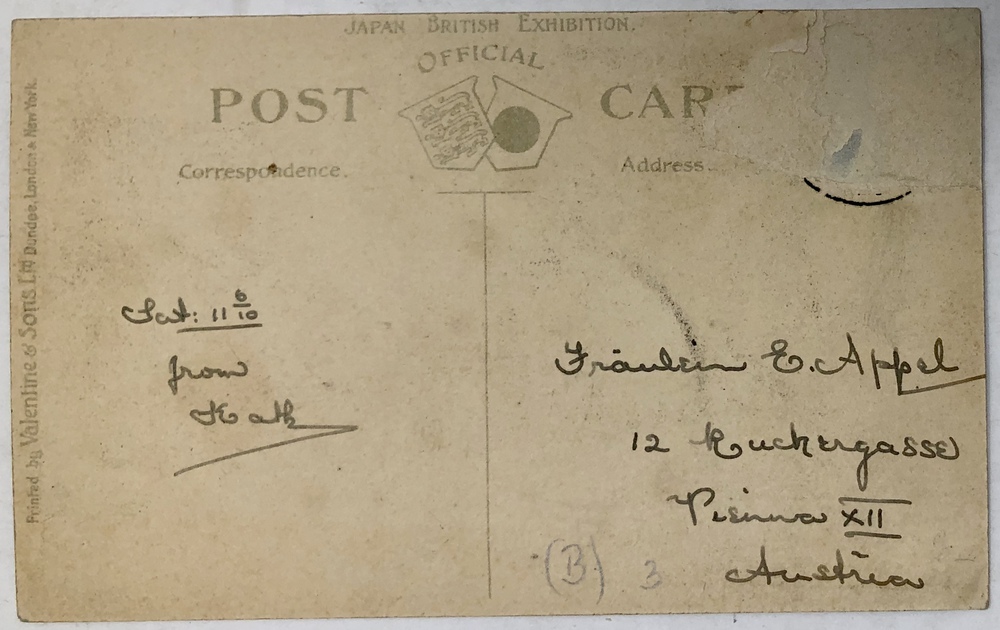 JAPAN BRITISH EXHIBITION.
OFFICIAL
POST CAR
Correspondence.
Address.
Printed by Valentine & Sons Ltd Dundee, London & New York.
Sat: 11 6/10
from
Kath
Fräulein E. Appel
12 Ruckergasse
Vienna XII
Austria
(B) 3